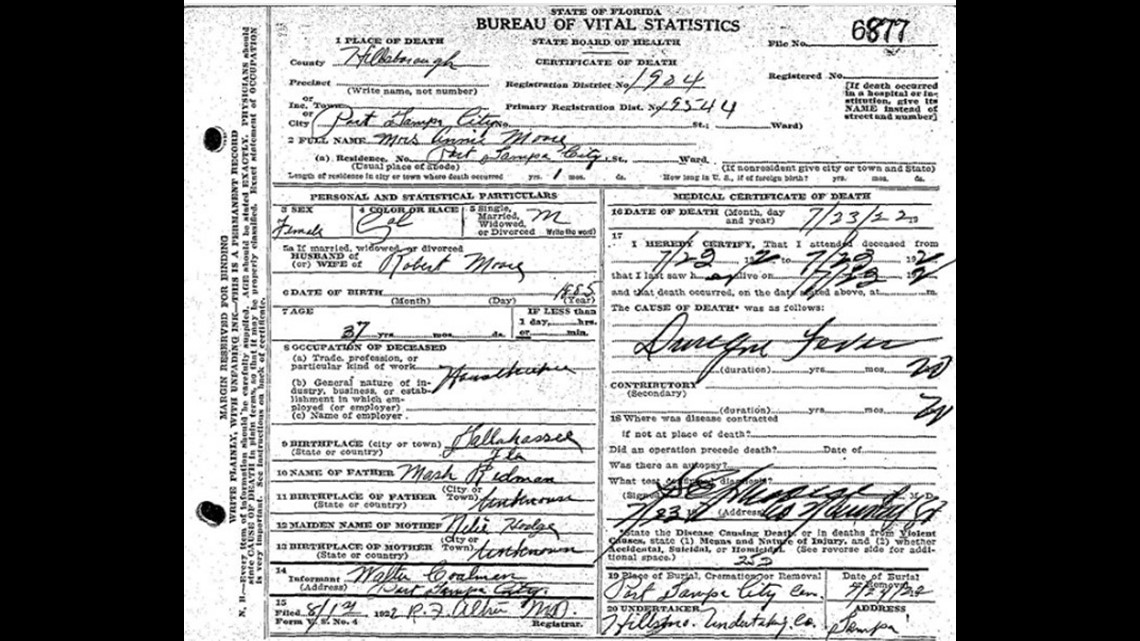 STATE OF FLORIDA
BUREAU OF VITAL STATISTICS
STATE BOARD OF HEALTH
CERTIFICATE OF DEATH
File No. 6877
1 PLACE OF DEATH
County Hillsborough
Precinct
(Write name, not number)
or
Inc. Town
or
City Port Tampa City No. St.; Ward)
Registration District No. 1904
Primary Registration Dist. No. 9544
Registered No.
[If death occurred in a hospital or institution, give its NAME instead of street and number]
2 FULL NAME Mrs Annie Moore
(a) Residence. No. Port Tampa City, St., Ward.
(Usual place of abode) (If nonresident give city or town and State)
Length of residence in city or town where death occurred yrs. 1 mos. ds. How long in U. S., if of foreign birth? yrs. mos. ds.
PERSONAL AND STATISTICAL PARTICULARS
3 SEX Female
4 COLOR OR RACE Col
5 Single, Married, Widowed, or Divorced Write the word) M
5a If married, widowed, or divorced
HUSBAND of
(or) WIFE of Robert Moore
6 DATE OF BIRTH 1885
(Month) (Day) (Year)
7 AGE 37 yrs. mos. ds.
IF LESS than
1 day, hrs.
or min.
8 OCCUPATION OF DECEASED
(a) Trade, profession, or
particular kind of work Housekeeper
(b) General nature of in-
dustry, business, or estab-
lishment in which em-
ployed (or employer)
(c) Name of employer
9 BIRTHPLACE (city or town) Tallahassee
(State or country) Fla
10 NAME OF FATHER Mash Ridman
11 BIRTHPLACE OF FATHER (City or Town) Unknown
(State or country)
12 MAIDEN NAME OF MOTHER Hodge
13 BIRTHPLACE OF MOTHER (City or Town) Unknown
(State or country)
14
Informant Walter Coalman
(Address) Port Tampa City.
15
Filed 8/12 1922 R. F. MD.
Form V. S. No. 4 Registrar.
MEDICAL CERTIFICATE OF DEATH
16 DATE OF DEATH (Month, day and year) 7/23/22 19
17
I HEREBY CERTIFY, That I attended deceased from
7/23 192 2 to 7/23 192 2
that I last saw h er alive on 7/23 192 2
and that death occurred, on the date stated above, at m.
The CAUSE OF DEATH* was as follows:
Dengue Fever
(duration) yrs. mos.
CONTRIBUTORY
(Secondary)
(duration) yrs. mos.
18 Where was disease contracted
if not at place of death?
Did an operation precede death? Date of
Was there an autopsy?
What test confirmed diagnosis?
(Signed) M. D.
7/23 19 (Address)
*State the Disease Causing Death, or in deaths from Violent
Causes, state (1) Means and Nature of Injury, and (2) whether
Accidental, Suicidal, or Homicidal. (See reverse side for addi-
tional space.)
19 Place of Burial, Cremation or Removal Date of Burial or Removal
Port Tampa City Cem. 7/24/22
20 UNDERTAKER ADDRESS
Hillsbro. Undertaking Co. Tampa
MARGIN RESERVED FOR BINDING
WRITE PLAINLY, WITH UNFADING INK—THIS IS A PERMANENT RECORD
N. B.—Every item of information should be carefully supplied. AGE should be stated EXACTLY. PHYSICIANS should
state CAUSE OF DEATH in plain terms, so that it may be properly classified. Exact statement of OCCUPATION
is very important. See instructions on back of certificate.